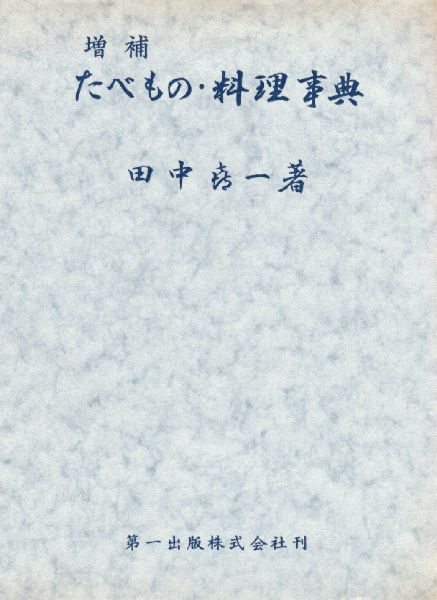 増補
たべもの・料理事典
田中喜一著
第一出版株式会社刊